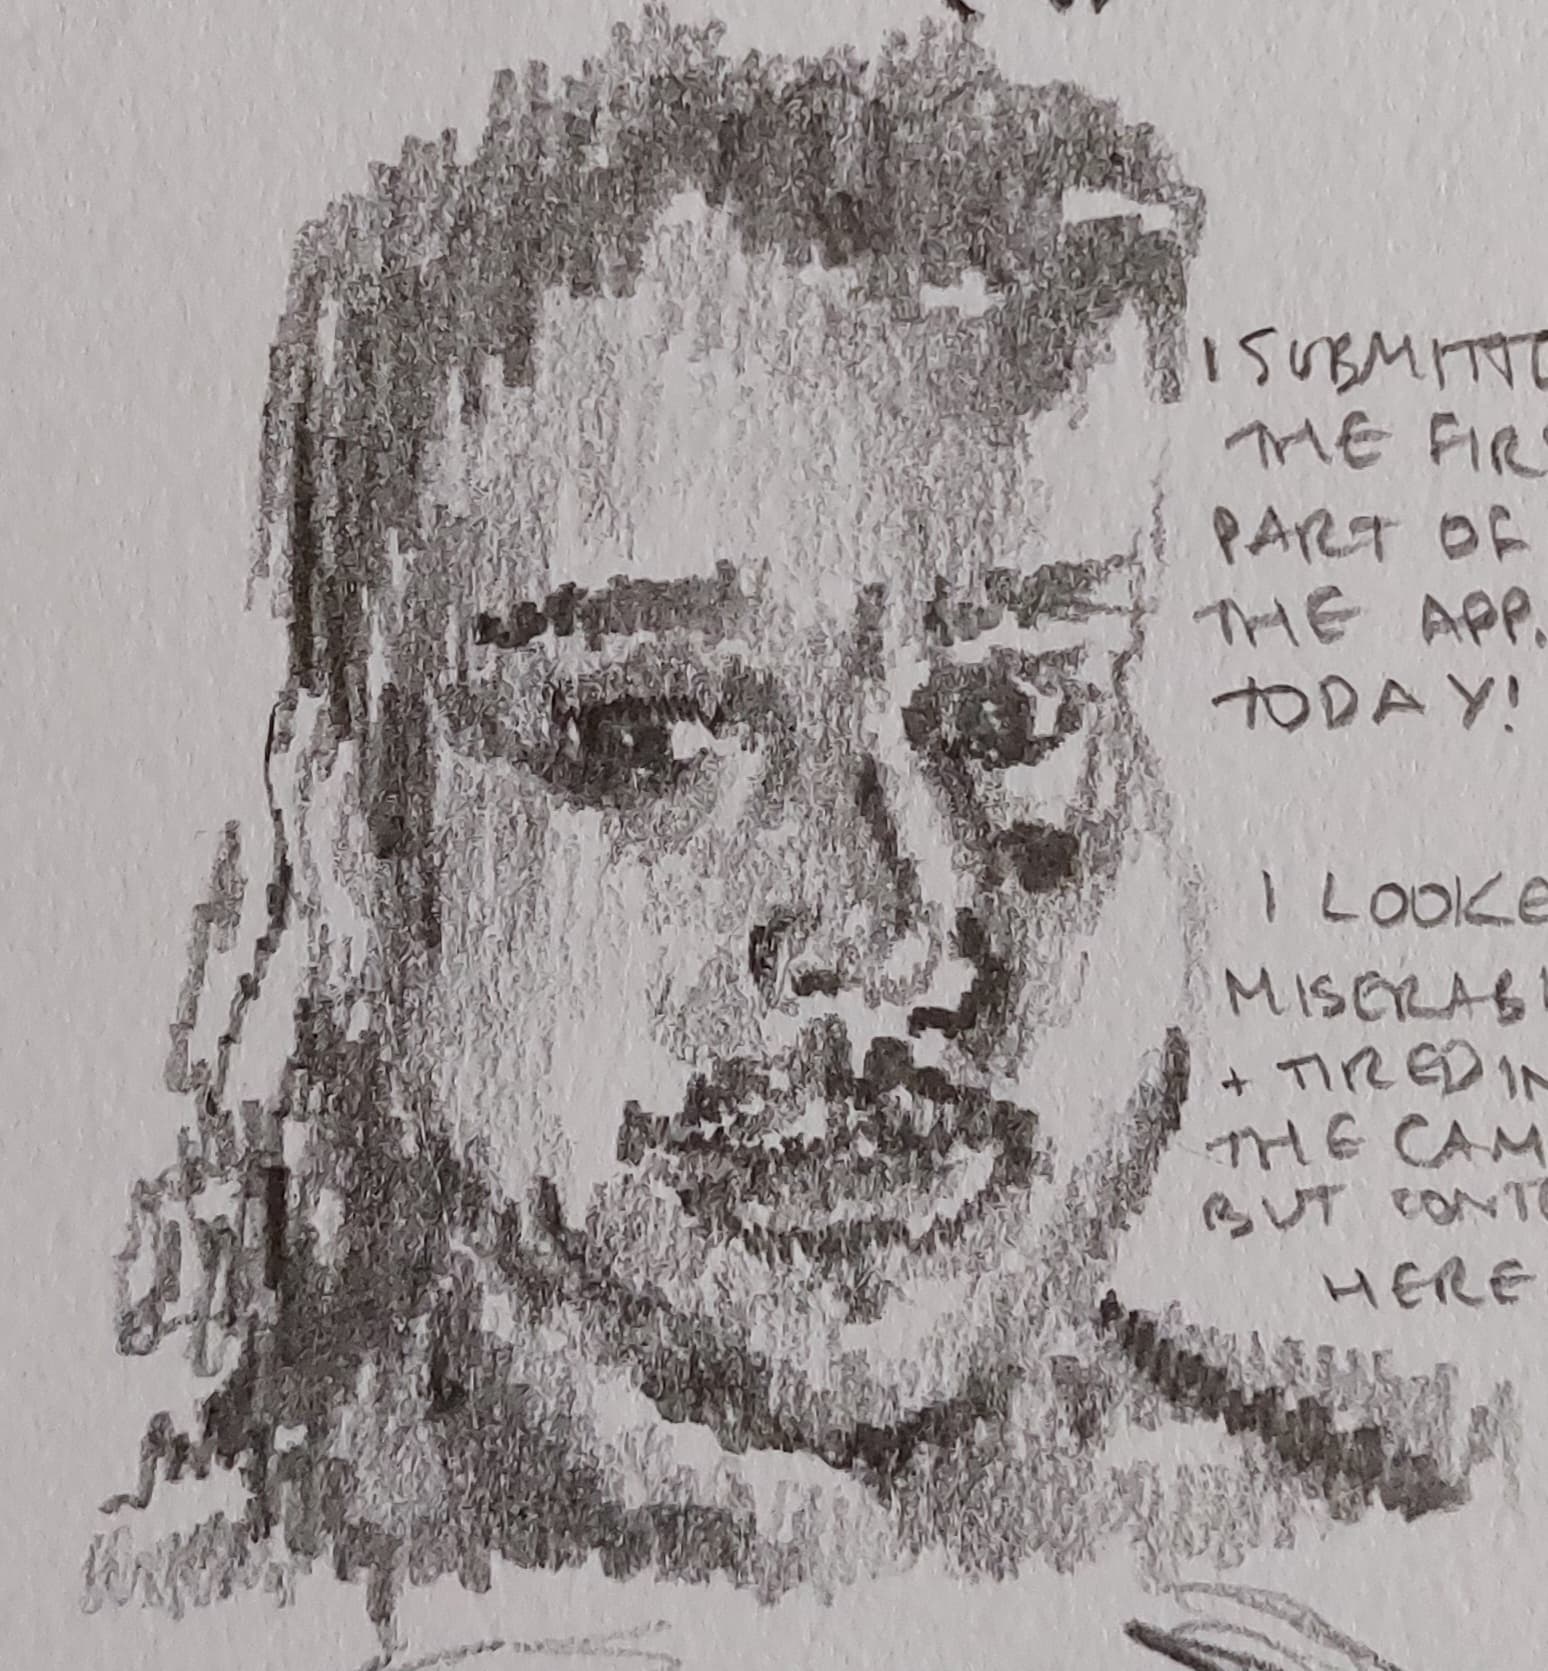 I SUBMITTE
THE FIRS
PART OF
THE APP.
TODAY!
I LOOKE
MISERABL
+ TIRED IN
THE CAM
BUT CONTE
HERE